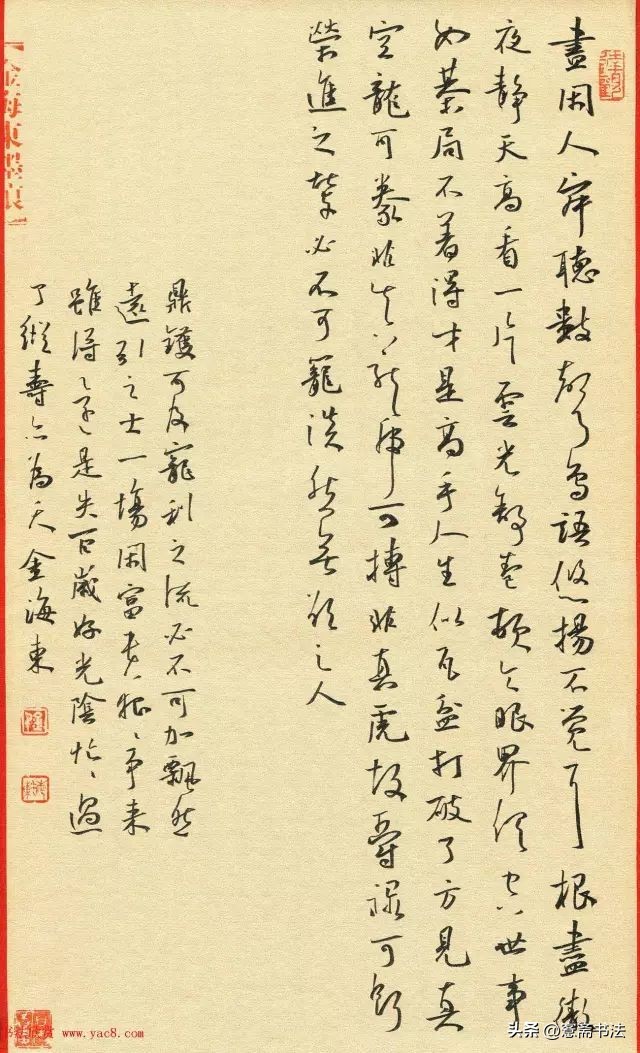 盡閑人寂聽數聲鳥語悠揚不覺耳根盡徹
夜靜天高看一片雲光舒卷頓令眼界俱空世事
如棊局不著得才是高手人生似瓦盆打破了方見真
空龍可豢非真龍虎可搏非真虎故爵祿可餌
榮進之輩必不可籠淡然無欲之人
鼎鑊可及寵利之流必不可加飄然
遠引之士一場閑富貴狠々爭來
雖得還是失百歲好光陰忙々過
了縱壽亦為夭金海東
金海東墨痕
www.yac8.com
头条@憲斋书法